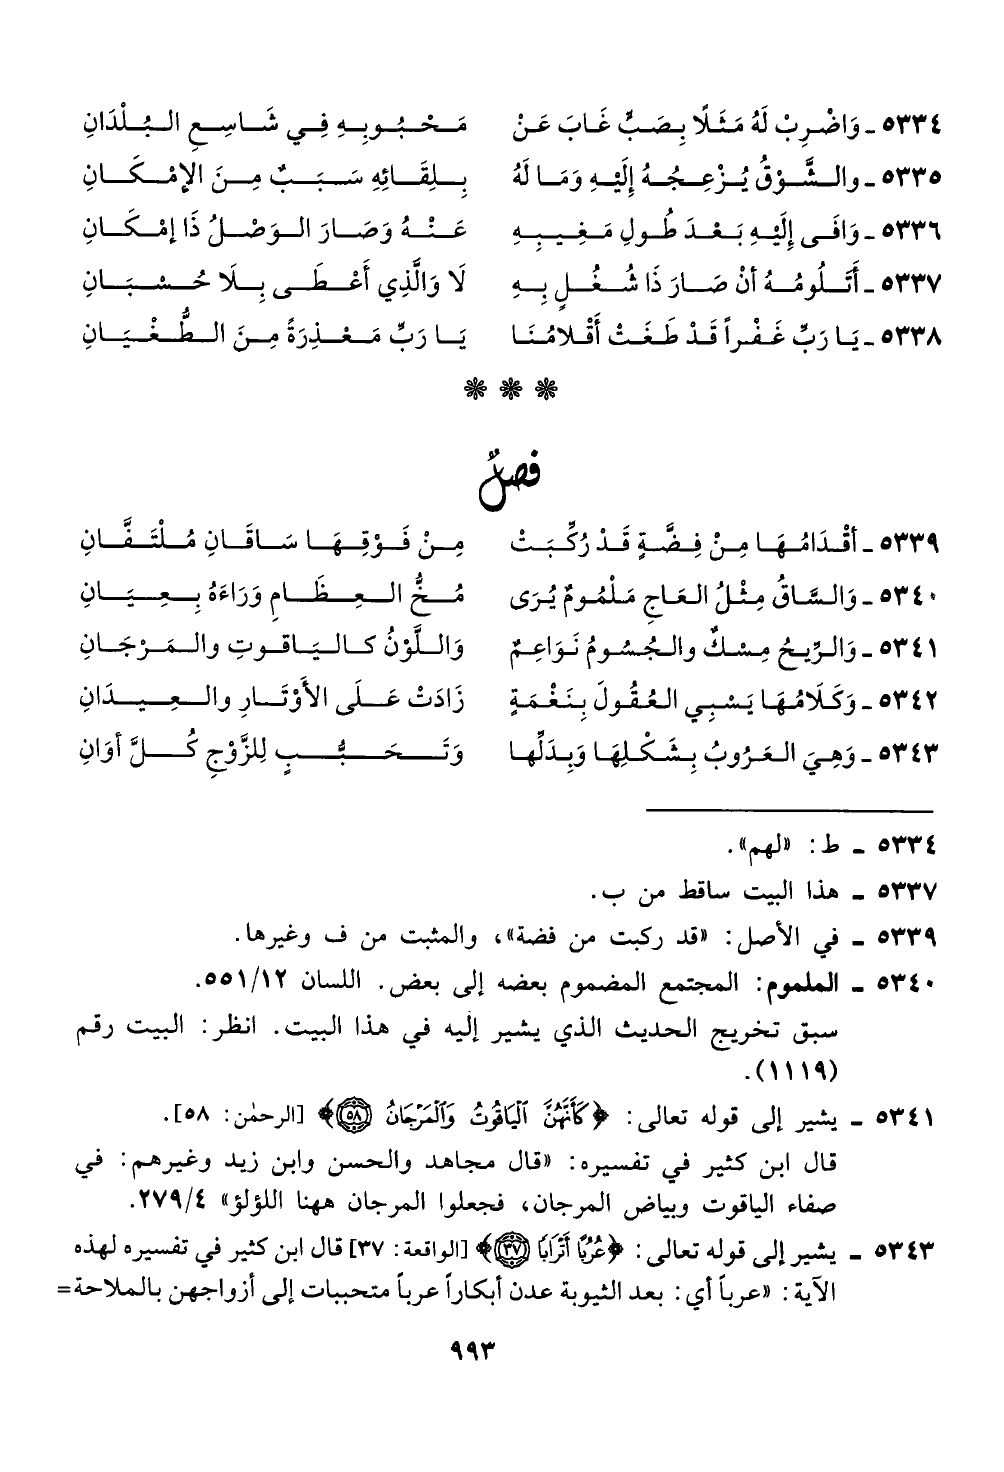 ٥٣٣٤ ـ وَاضْرِبْ لَهُ مَثَلًا بِصَبٍّ غَابَ عَنْ مَحْبُوبِهِ فِي شَاسِعِ البُلْدَانِ
٥٣٣٥ ـ والشَّوْقُ يُزْعِجُهُ إِلَيْهِ وَمَا لَهُ بِلِقَائِهِ سَبَبٌ مِنَ الإمْكَانِ
٥٣٣٦ ـ وَافَى إِلَيْهِ بَعْدَ طُولِ مَغِيبِهِ عَنْهُ وَصَارَ الوَصْلُ ذَا إمْكَانِ
٥٣٣٧ ـ أَتَلُومُهُ أنْ صَارَ ذَا شُغُلٍ بِهِ لَا وَالَّذِي أَعْطَى بِلَا حُسْبَانِ
٥٣٣٨ ـ يَا رَبِّ غَفْراً قَدْ طَغَتْ أَقْلامُنَا يَا رَبِّ مَعْذِرَةً مِنَ الطُّغْيَانِ
❁ ❁ ❁
فصلٌ
٥٣٣٩ ـ أقْدَامُهَا مِنْ فِضَّةٍ قَدْ رُكِّبَتْ مِنْ فَوْقِهَا سَاقَانِ مُلْتَفَّانِ
٥٣٤٠ ـ وَالسَّاقُ مِثْلُ العَاجِ مَلْمُومٌ يُرَى مُخُّ العِظَامِ وَرَاءَهُ بِعِيَانِ
٥٣٤١ ـ وَالرِّيحُ مِسْكٌ والجُسُومُ نَوَاعِمٌ وَاللَّوْنُ كاليَاقوتِ والمَرْجَانِ
٥٣٤٢ ـ وَكَلَامُهَا يَسْبِي العُقُولَ بِنَغْمَةٍ زَادَتْ عَلَى الأَوْتَارِ والعِيدَانِ
٥٣٤٣ ـ وَهِيَ العَرُوبُ بِشَكْلِهَا وَبِدَلِّهَا وَتَحَبُّبٍ لِلزَّوْجِ كُلَّ أوَانِ
٥٣٣٤ ـ ط: «لهم».
٥٣٣٧ ـ هذا البيت ساقط من ب.
٥٣٣٩ ـ في الأصل: «قد ركبت من فضة»، والمثبت من ف وغيرها.
٥٣٤٠ ـ الملموم: المجتمع المضموم بعضه إلى بعض. اللسان ٥٥١/١٢.
سبق تخريج الحديث الذي يشير إليه في هذا البيت. انظر: البيت رقم
(١١١٩).
٥٣٤١ ـ يشير إلى قوله تعالى: ﴿كَأَنَّهُنَّ ٱلْيَاقُوتُ وَٱلْمَرْجَانُ ۝٥٨﴾ [الرحمٰن: ٥٨].
قال ابن كثير في تفسيره: «قال مجاهد والحسن وابن زيد وغيرهم: في
صفاء الياقوت وبياض المرجان، فجعلوا المرجان ههنا اللؤلؤ» ٢٧٩/٤.
٥٣٤٣ ـ يشير إلى قوله تعالى: ﴿عُرُبًا أَتْرَابًا ۝٣٧﴾ [الواقعة: ٣٧] قال ابن كثير في تفسيره لهذه
الآية: «عرباً أي: بعد الثيوبة عدن أبكاراً عرباً متحببات إلى أزواجهن بالملاحة=
٩٩٣